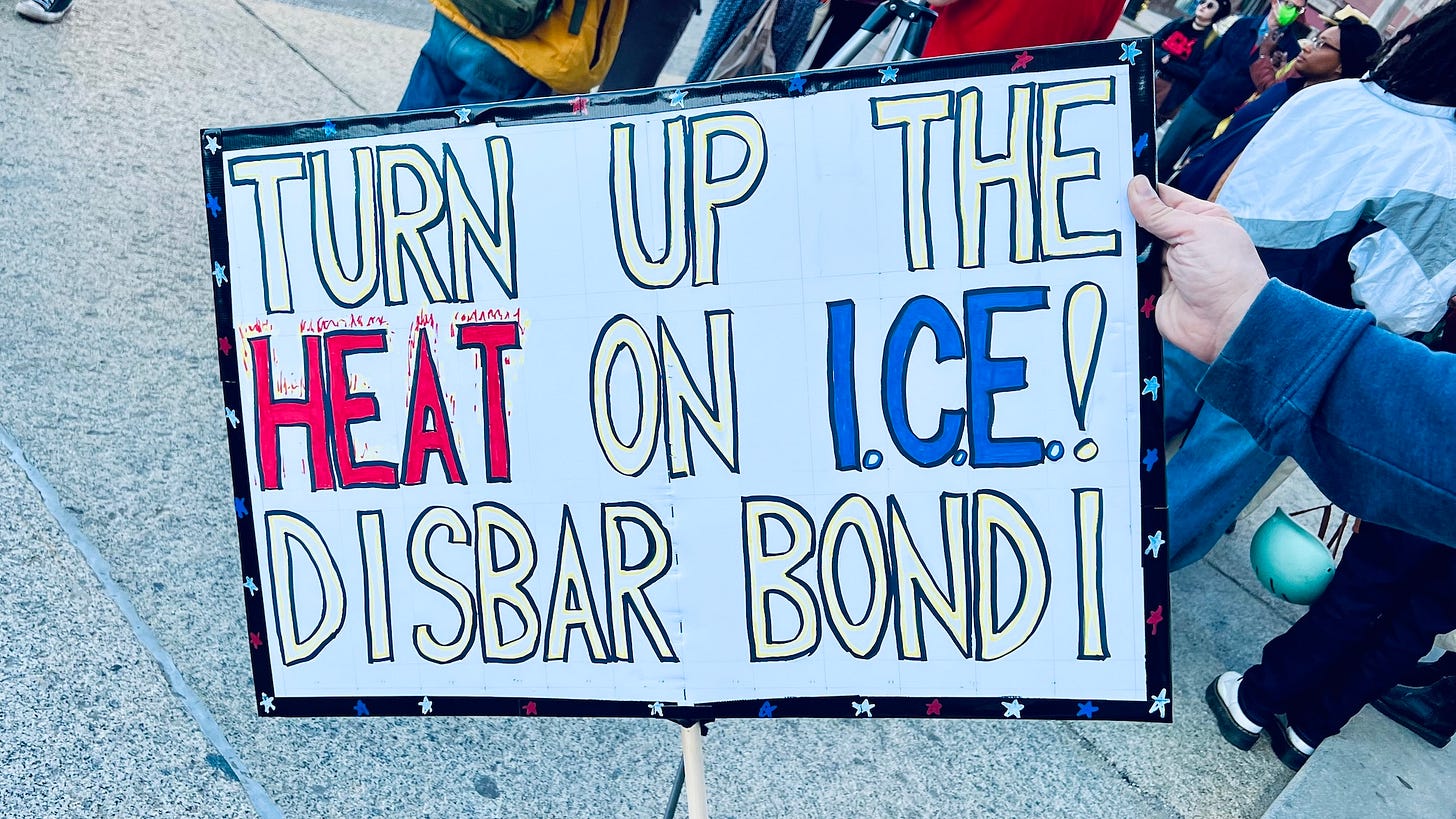 TURN UP THE
HEAT ON I.C.E.!
DISBAR BONDI